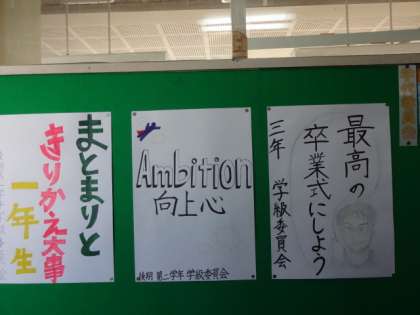 まとまりと
きりかえ大事
一年生
Ambition
向上心
第二学年 学級委員会
最高の
卒業式にしよう
三年 学級委員会